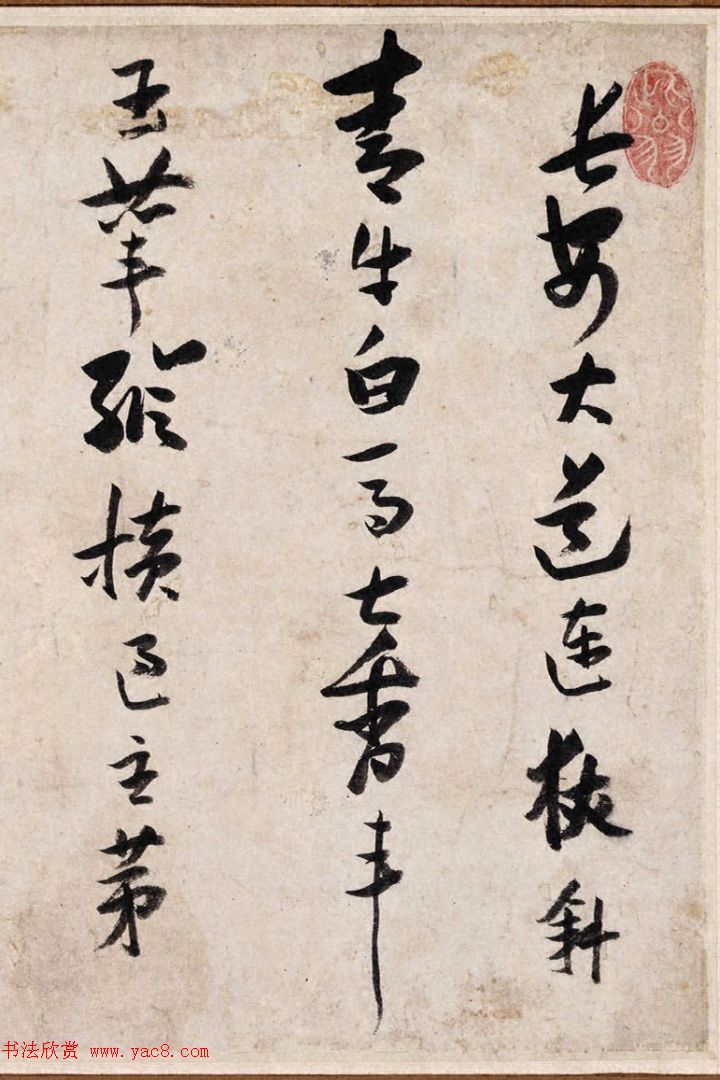 長安大道連狹斜
青牛白馬七香車
玉輦縱橫過主第
书法欣赏 www.yac8.com